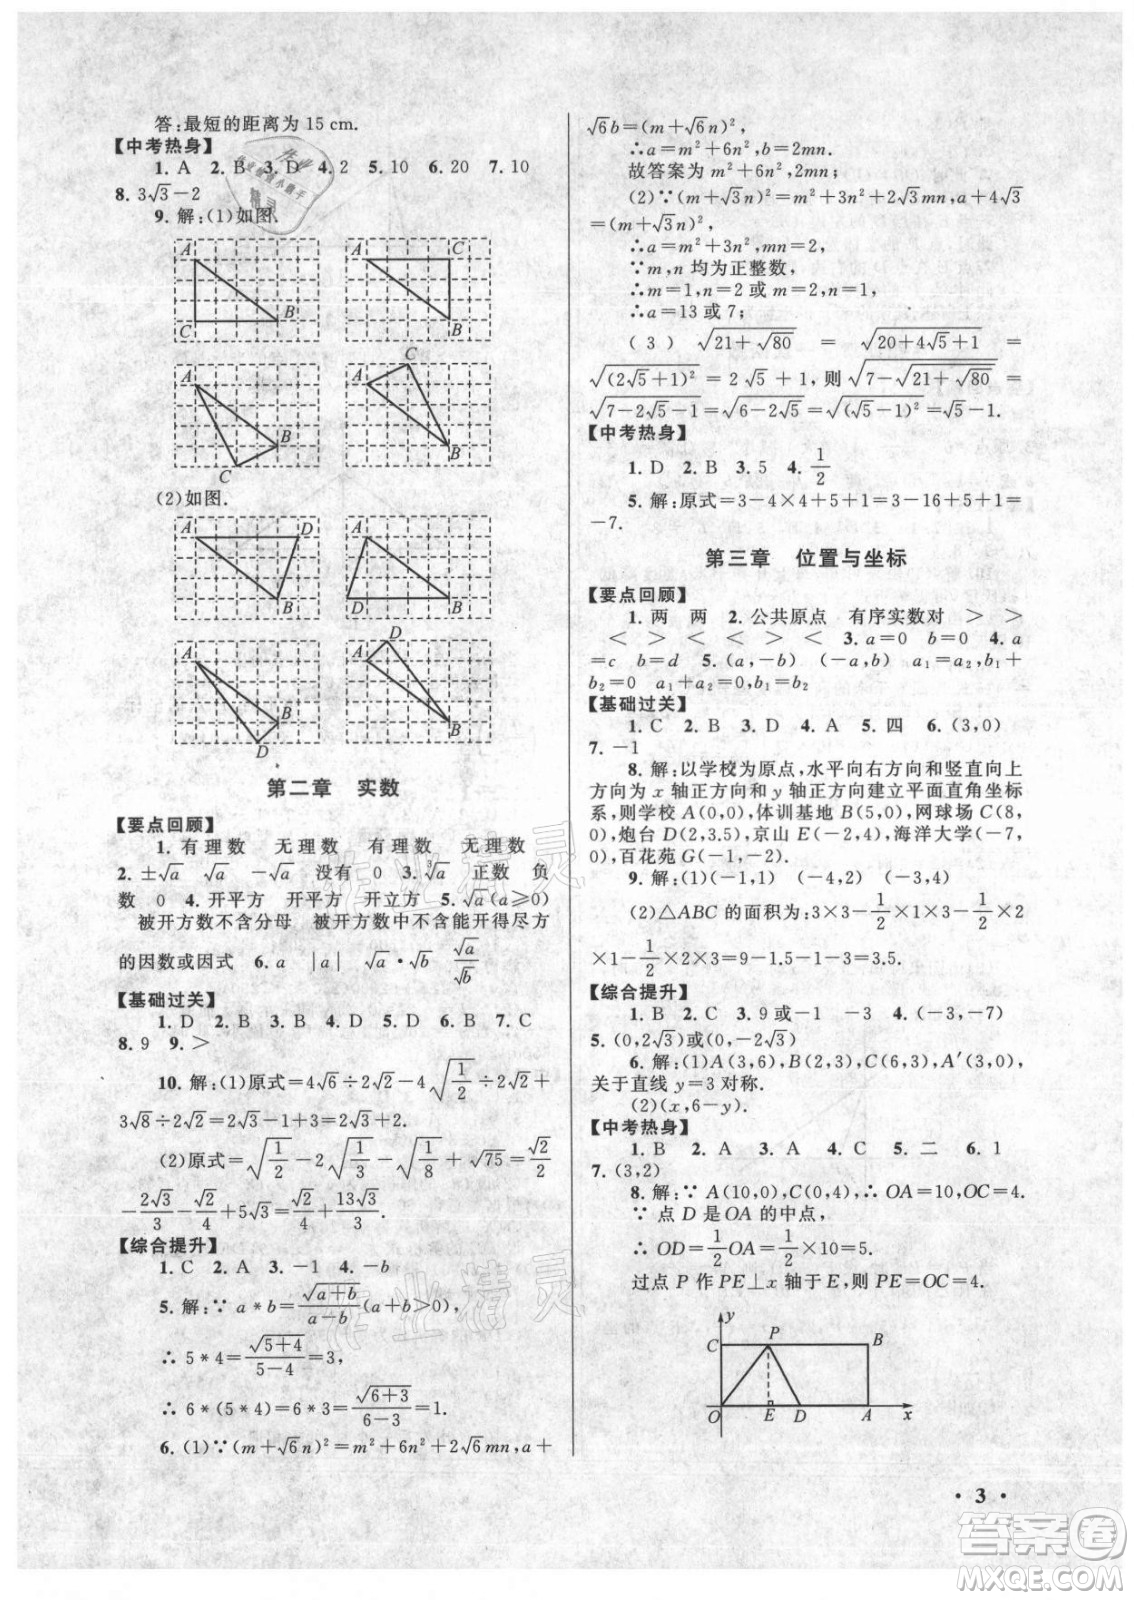 答:最短的距离为 15 cm.
【中考热身】
1. A 2. B 3. D 4. 2 5. 10 6. 20 7. 10
8. 3√3－2
9. 解:(1)如图.
A C B
A C B
A B C
C A B
(2)如图.
A D B
A D B
A B D
D A B
第二章 实数
【要点回顾】
1. 有理数 无理数 有理数 无理数
2. ±√a √a －√a 没有 0 3. ∛a 正数 负
数 0 4. 开平方 开平方 开立方 5. √a(a≥0)
被开方数不含分母 被开方数中不含能开得尽方
的因数或因式 6. a |a| √a·√b √a/√b
【基础过关】
1. D 2. B 3. B 4. B 5. D 6. B 7. C
8. 9 9. >
10. 解:(1)原式=4√6÷2√2－4√(1/2)÷2√2+
3√8÷2√2=2√3－1+3=2√3+2.
(2)原式=√(1/2)－2√(1/3)－√(1/8)+√75=√2/2
－2√3/3－√2/4+5√3=√2/4+13√3/3.
【综合提升】
1. C 2. A 3. －1 4. －b
5. 解:∵a*b=√(a+b)/(a－b)(a+b>0),
∴5*4=√(5+4)/(5－4)=3,
∴6*(5*4)=6*3=√(6+3)/(6－3)=1.
6. (1)∵(m+√6n)²=m²+6n²+2√6mn,a+
√6b=(m+√6n)²,
∴a=m²+6n²,b=2mn.
故答案为 m²+6n²,2mn;
(2)∵(m+√3n)²=m²+3n²+2√3mn,a+4√3
=(m+√3n)²,
∴a=m²+3n²,mn=2,
∵m,n 均为正整数,
∴m=1,n=2 或 m=2,n=1,
∴a=13 或 7;
(3)√(21+√80) = √(20+4√5+1) =
√((2√5+1)²)=2√5+1,则√(7－√(21+√80))=
√(7－2√5－1)=√(6－2√5)=√((√5－1)²)=√5－1.
【中考热身】
1. D 2. B 3. 5 4. 1/2
5. 解:原式=3－4×4+5+1=3－16+5+1=
－7.
第三章 位置与坐标
【要点回顾】
1. 两 两 2. 公共原点 有序实数对 > >
< > < < > < 3. a=0 b=0 4. a
=c b=d 5. (a,－b) (－a,b) a₁=a₂ b₁+
b₂=0 a₁+a₂=0,b₁=b₂
【基础过关】
1. C 2. B 3. D 4. A 5. 四 6. (3,0)
7. －1
8. 解:以学校为原点,水平向右方向和竖直向上
方向为 x 轴正方向和 y 轴正方向建立平面直角坐标
系,则学校 A(0,0),体训基地 B(5,0),网球场 C(8,
0),炮台 D(2,3.5),京山 E(－2,4),海洋大学(－7,
0),百花苑 G(－1,－2).
9. 解:(1)(－1,1) (－4,2) (－3,4)
(2)△ABC 的面积为:3×3－1/2×1×3－1/2×2
×1－1/2×2×3=9－1.5－1－3=3.5.
【综合提升】
1. B 2. C 3. 9 或－1 －3 4. (－3,－7)
5. (0,2√3)或(0,－2√3)
6. 解:(1)A(3,6),B(2,3),C(6,3),A′(3,0)
关于直线 y=3 对称.
(2)(x,6－y).
【中考热身】
1. B 2. A 3. A 4. C 5. 二 6. 1
7. (3,2)
8. 解:∵A(10,0),C(0,4),∴OA=10,OC=4.
∵点 D 是 OA 的中点,
∴OD=1/2OA=1/2×10=5.
过点 P 作 PE⊥x 轴于 E,则 PE=OC=4.
y
C P B
O E D A x
· 3 ·
作业精灵
作业精灵
答案圈
MXQE.COM